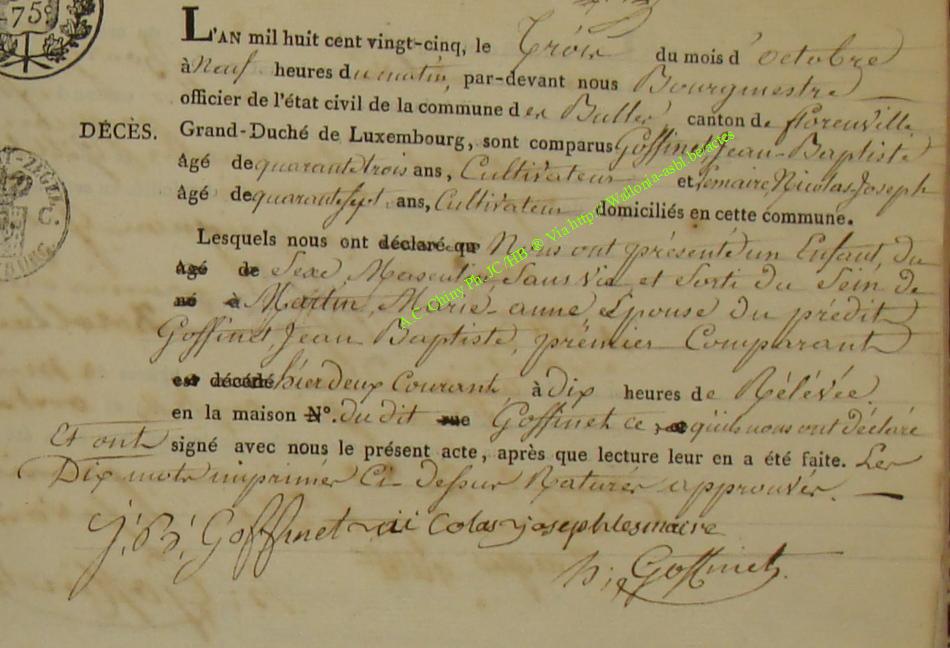 75
L'AN mil huit cent vingt-cinq, le Trois du mois d'octobre
à Neuf heures du matin, par-devant nous Bourgmestre
officier de l'état civil de la commune des Bulles canton de florenville
DÉCÈS. Grand-Duché de Luxembourg, sont comparus Goffinet Jean-Baptiste
Agé de quarante trois ans, Cultivateur et Lemaire, Nicolas Joseph
Agé de quarante sept ans, Cultivateur domiciliés en cette commune.
Lesquels nous ont déclaré que Nous ont présenté un Enfant, du
Agé de Sexe Masculin Sans Vie et Sorti du Sein de
né à Martin, Marie-anne Epouse du prédit
Goffinet, Jean Baptiste, prémier Comparant
est décédé hier deux Courant à dix heures de Rélévée.
en la maison N°. du dit rue Goffinet ce qu'ils nous ont déclaré
Et ont signé avec nous le présent acte, après que lecture leur en a été faite. Les
Dix mots imprimés Ci-dessus Raturés approuvés.
J: B: Goffinet nicolas joseph lesmaire
h: Goffinet
A.C. Chiny Ph. JC /HB ® Via http://Wallonia-asbl.be.actes